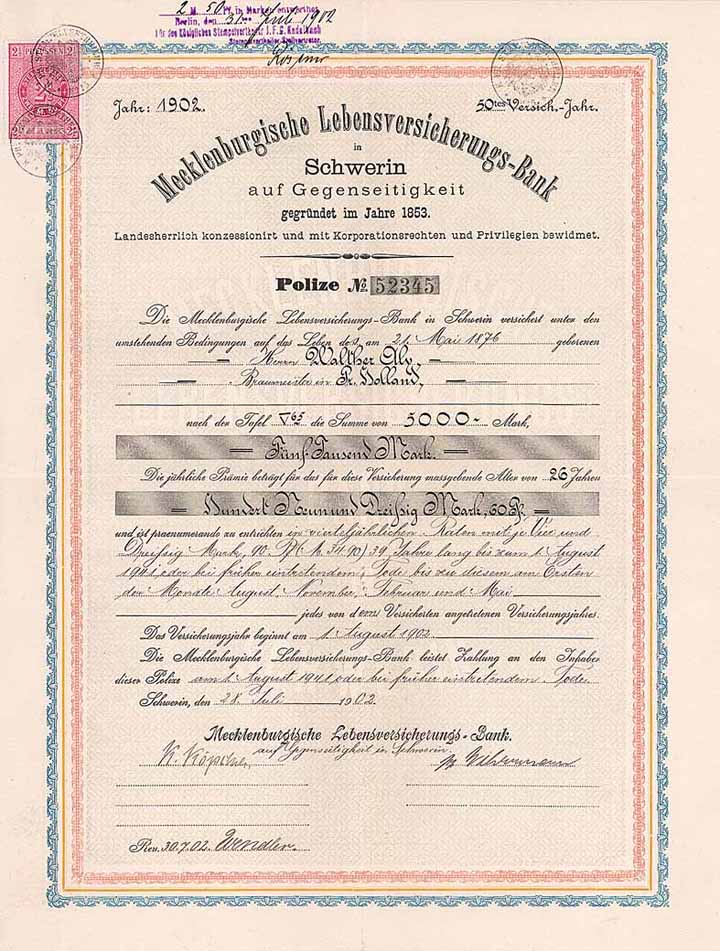 2 M. 50 Pf. in Marken entwerthet
Berlin, den 31. Juli 1902
für das Königliche Stempelvertheiler J.F.G. Kadelbach
PREUSSEN
Jahr: 1902.
50tes Versich.-Jahr.
Mecklenburgische Lebensversicherungs-Bank
in
Schwerin
auf Gegenseitigkeit
gegründet im Jahre 1853.
Landesherrlich konzessionirt und mit Korporationsrechten und Privilegien bewidmet.
Polize No. 52345
Die Mecklenburgische Lebensversicherungs-Bank in Schwerin versichert unter den
umstehenden Bedingungen auf das Leben des am 21. Mai 1876 geborenen
— Herrn Walther Aly, —
— Braumeister in Pr. Holland, —
nach der Tafel V 65 die Summe von 5000 Mark,
— Fünf-Tausend Mark. —
Die jährliche Prämie beträgt für das für diese Versicherung massgebende Alter von 26 Jahren
— Hundert Neun und Dreißig Mark, 60 Pf. —
und ist praenumerando zu entrichten in vierteljährlichen Raten mit je Vier und
Dreissig Mark, 90 Pf. (M. 34.90) 39 Jahre lang bis zum 1. August
1941, oder bei früher eintretendem Tode bis zu diesem am Ersten
der Monate August, November, Februar und Mai
jedes von dem Versicherten angetretenen Versicherungsjahres.
Das Versicherungsjahr beginnt am 1. August 1902.
Die Mecklenburgische Lebensversicherungs-Bank leistet Zahlung an den Inhaber
dieser Polize am 1. August 1941, oder bei früher eintretendem Tode.
Schwerin, den 28. Juli 1902.
Mecklenburgische Lebensversicherungs-Bank.
auf Gegenseitigkeit in Schwerin.
Rev. 30.7.02. Wendler.